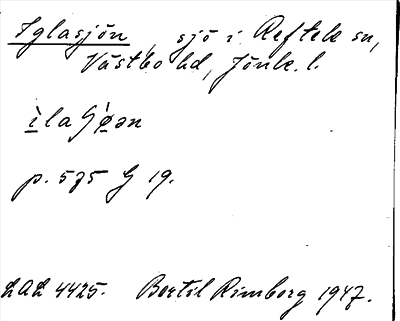 Iglasjön, sjö i Reftele sn,
Västbo hd, Jönk. l.
ìlaʃø̀ən
p. 575 G 19.
LAL 4425. Bertil Rimborg 1947.